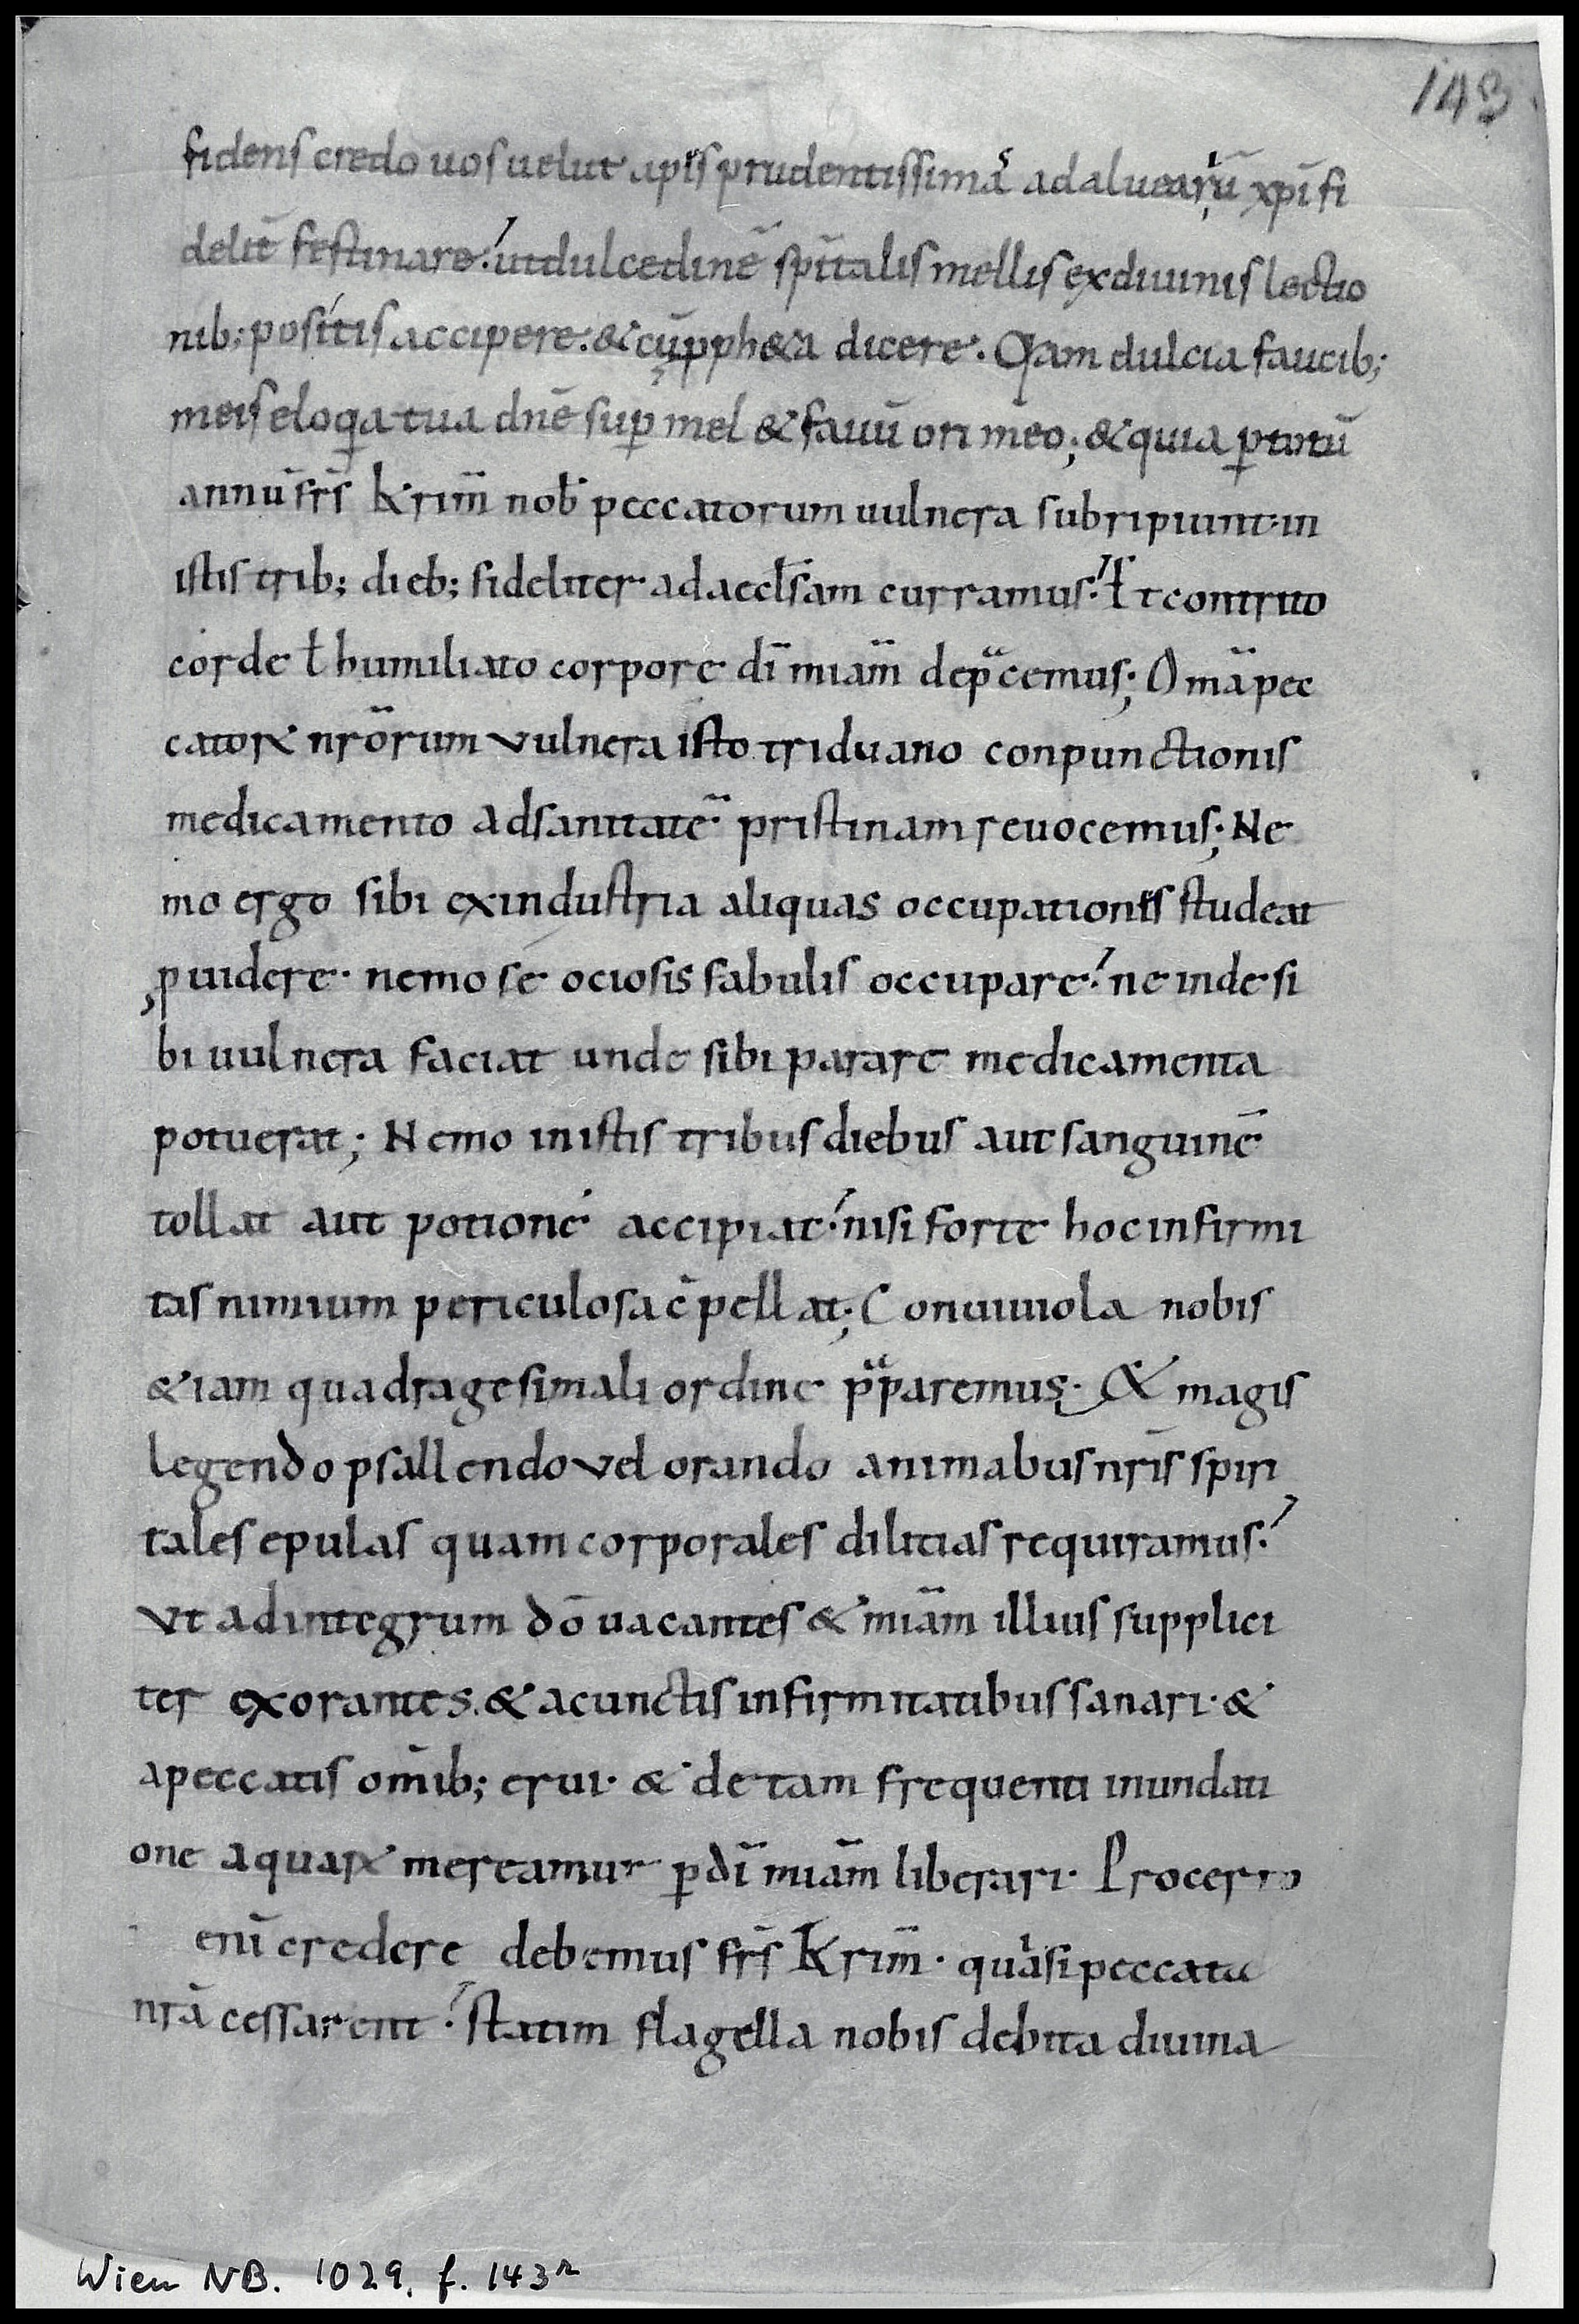 143
fidens credo uos uelut apis prudentissimas ad aluearıū xp̄i fi
deliē festinare. ut dulcedinē sp̄italis mellis ex diuinis lectio
nib; positis accipere. & cū propheta dicere. Qam dulcia faucib;
meis eloqia tua dn̄e sup mel & fauū ori meo; & quia p totū
annū fr̄s krim̄ nob̄ peccatorum uulnera subripiunt. in
istis trib; dieb; fideliter ad aecl̄sam curramus. ł et contrito
corde ł humiliato corpore dī miām dep̄cemus; Om̄a pec
catoꝝ nr̄orum vulnera isto triduano conpunctionis
medicamento ad sanitatē pristinam reuocemus; Ne
mo ergo sibi ex industria aliquas occupationis studeat
ꝓuidere. nemo se ociosis fabulis occupare. ne inde si
bi uulnera faciat unde sibi parare medicamenta
potuerat; Nemo in istis tribus diebus aut sanguinē
tollat aut potionē accipiat. nisi forte hoc infirmi
tas nimium periculosa cōpellat; Conuiuiola nobis
& iam quadragesimali ordine p̄paremus. & magis
legendo psallendo vel orando animabus nr̄is spiri
tales epulas quam corporales dilitias requiramus.
vt ad integrum dō uacantes & miām illius supplici
ter exorantes. & a cunctis infirmitatibus sanari. &
a peccatis om̄ib; erui. & de tam frequenti inundati
one aquaꝝ mereamur ꝑ dī miām liberari. Pro certo
enī credere debemus fr̄s krim̄. quia si peccata
nr̄a cessarent. statim flagella nobis debita diuina
Wien NB. 1029. f. 143r